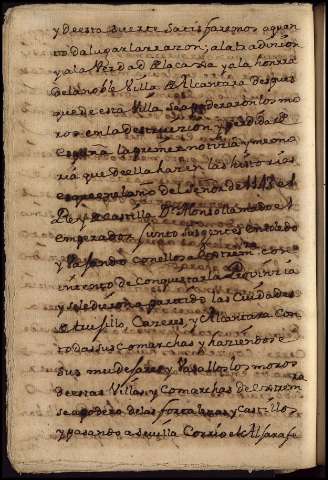 y de esta suerte satisfaremos a quan
to da lugar la razon; a la tradision
y a la Verdad de la cassa y a la honrra
de la noble Villa de Alcantara despues
que de esta Villa se apoderaron los mo
ros en la destruision y perdida de
España la primera notizia y memo
ria que de ella hazen las historias
es que en el año del señor de 1145 el
Rey de Castilla Dn Alonso llamado el
emperador junto sus gentes en toledo
y passando con ellos a Estrem con
intento de conquistar la Provinzia
y se le dieron a partido las Ciudades
Caceres y Alcantara Con
todas sus Comarchas y haziendose
sus Vasallos los moros
de estas Villas y Comarchas de Estrem
se apodero de las fortalezas y castillos
y pasando a sevilla Corrio el Alxarafe